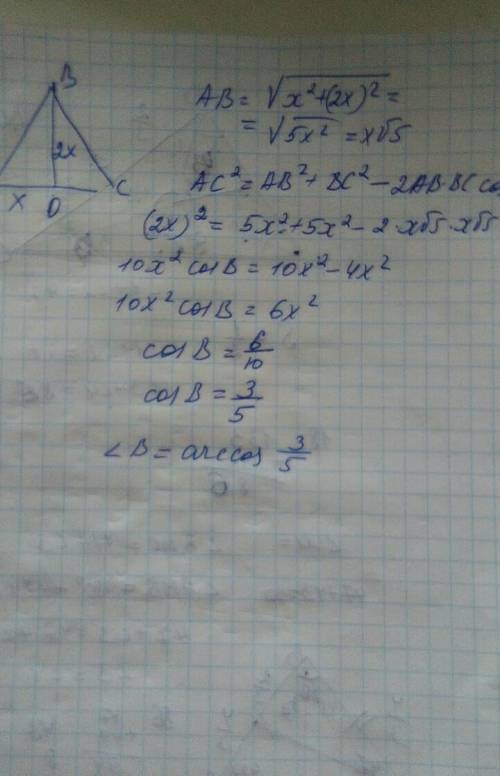 B
2x
x O C
AB = √x²+(2x)² =
= √5x² = x√5
AC² = AB² + BC² - 2AB·BC co
(2x)² = 5x² + 5x² - 2·x√5·x√5
10x² cosB = 10x² - 4x²
10x² cosB = 6x²
cosB = 6/10
cosB = 3/5
∠B = arccos 3/5